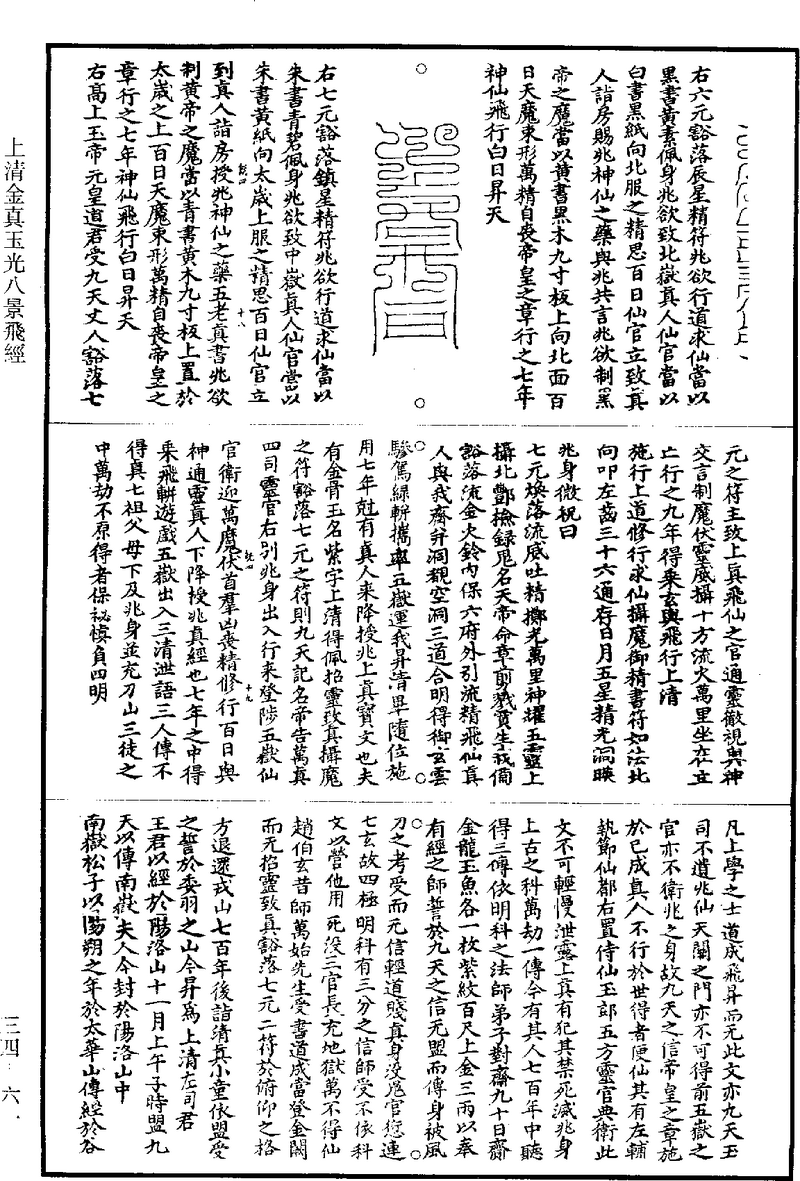 右六元豁落辰星精符兆欲行道求仙當以
黑書黃素佩身兆欲致北嶽真人仙官當以
白書黑紙向北服之精思百日仙官立致真
人詣房賜兆神仙之藥與兆共言兆欲制黑
帝之魔當以黃書黑木九寸板上向北面百
日天魔束形萬精自喪帝皇之章行之七年
神仙飛行白日昇天
右七元豁落鎮星精符兆欲行道求仙當以
朱書青碧佩身兆欲致中嶽真人仙官當以
朱書黃紙向太歲上服之精思百日仙官立
到真人詣房授兆神仙之藥五老真書兆欲
制黃帝之魔當以青書黃木九寸板上置於
太歲之上百日天魔束形萬精自喪帝皇之
章行之七年神仙飛行白日昇天
右高上玉帝元皇道君受九天丈人豁落七
元之符主致上真飛仙之官通靈徹視與神
交言制魔伏靈威攝十方流火萬里坐在立
亡行之九年得乘玄輿飛行上清
施行上道修行求仙攝魔御精書符如法北
向叩左齒三十六通存日月五星精光洞映
兆身微祝曰
七元煥落流威吐精擲光萬里神耀五靈上
攝北酆撿錄鬼名天帝命章前戮貫生我備
豁落流金火鈴內保六府外引流精飛仙真
人與我齋并洞觀空洞三道合明得御玄雲
驂駕綠軿攜率五嶽運我昇清畢隨位施
用七年尅有真人來降授兆上真寶文也夫
有金骨玉名紫字上清得佩招靈致真攝魔
之符豁落七元之符則九天記名帝告萬真
四司靈官右別兆身出入行來登陟五嶽仙
官衛迎萬魔伏首羣凶喪精修行百日與
神通靈真人下降授兆真經也七年之中得
乘飛軿遊戲五嶽出入三清泄語三人傳不
得真七祖父母下及兆身並充刀山三徒之
中萬劫不原得者保祕慎負四明
凡上學之士道成飛昇而无此文亦九天玉
司不遺兆仙天關之門亦不可得前五嶽之
官亦不衛兆之身故九天之信帝皇之章施
於已成真人不行於世得者便仙其有左輔
執節仙都右置侍仙玉郎五方靈官典衛此
文不可輕慢泄露上真有犯其禁死滅兆身
上古之科萬劫一傳今有其人七百年中聽
得三傳依明科之法師弟子對齋九十日齎
金龍玉魚各一枚紫紋百尺上金三兩以奉
有經之師誓於九天之信无盟而傳身被風
刀之考受而无信輕道賤真身沒鬼官愆連
七玄故四極明科有三分之信師受不依科
文以營他用死沒三官長充地獄萬不得仙
趙伯玄昔師萬始先生受書道成當登金闕
而无招靈致真豁落七元二符於俯仰之格
方退還戎山七百年後詣清真小童依盟受
之誓於委羽之山今昇爲上清左司君
王君以經於陽洛山十一月上午子時盟九
天以傳南嶽夫人今封於陽洛山中
南嶽松子以陽朔之年於太華山傳經於谷
上清金真玉光八景飛經
三四·六